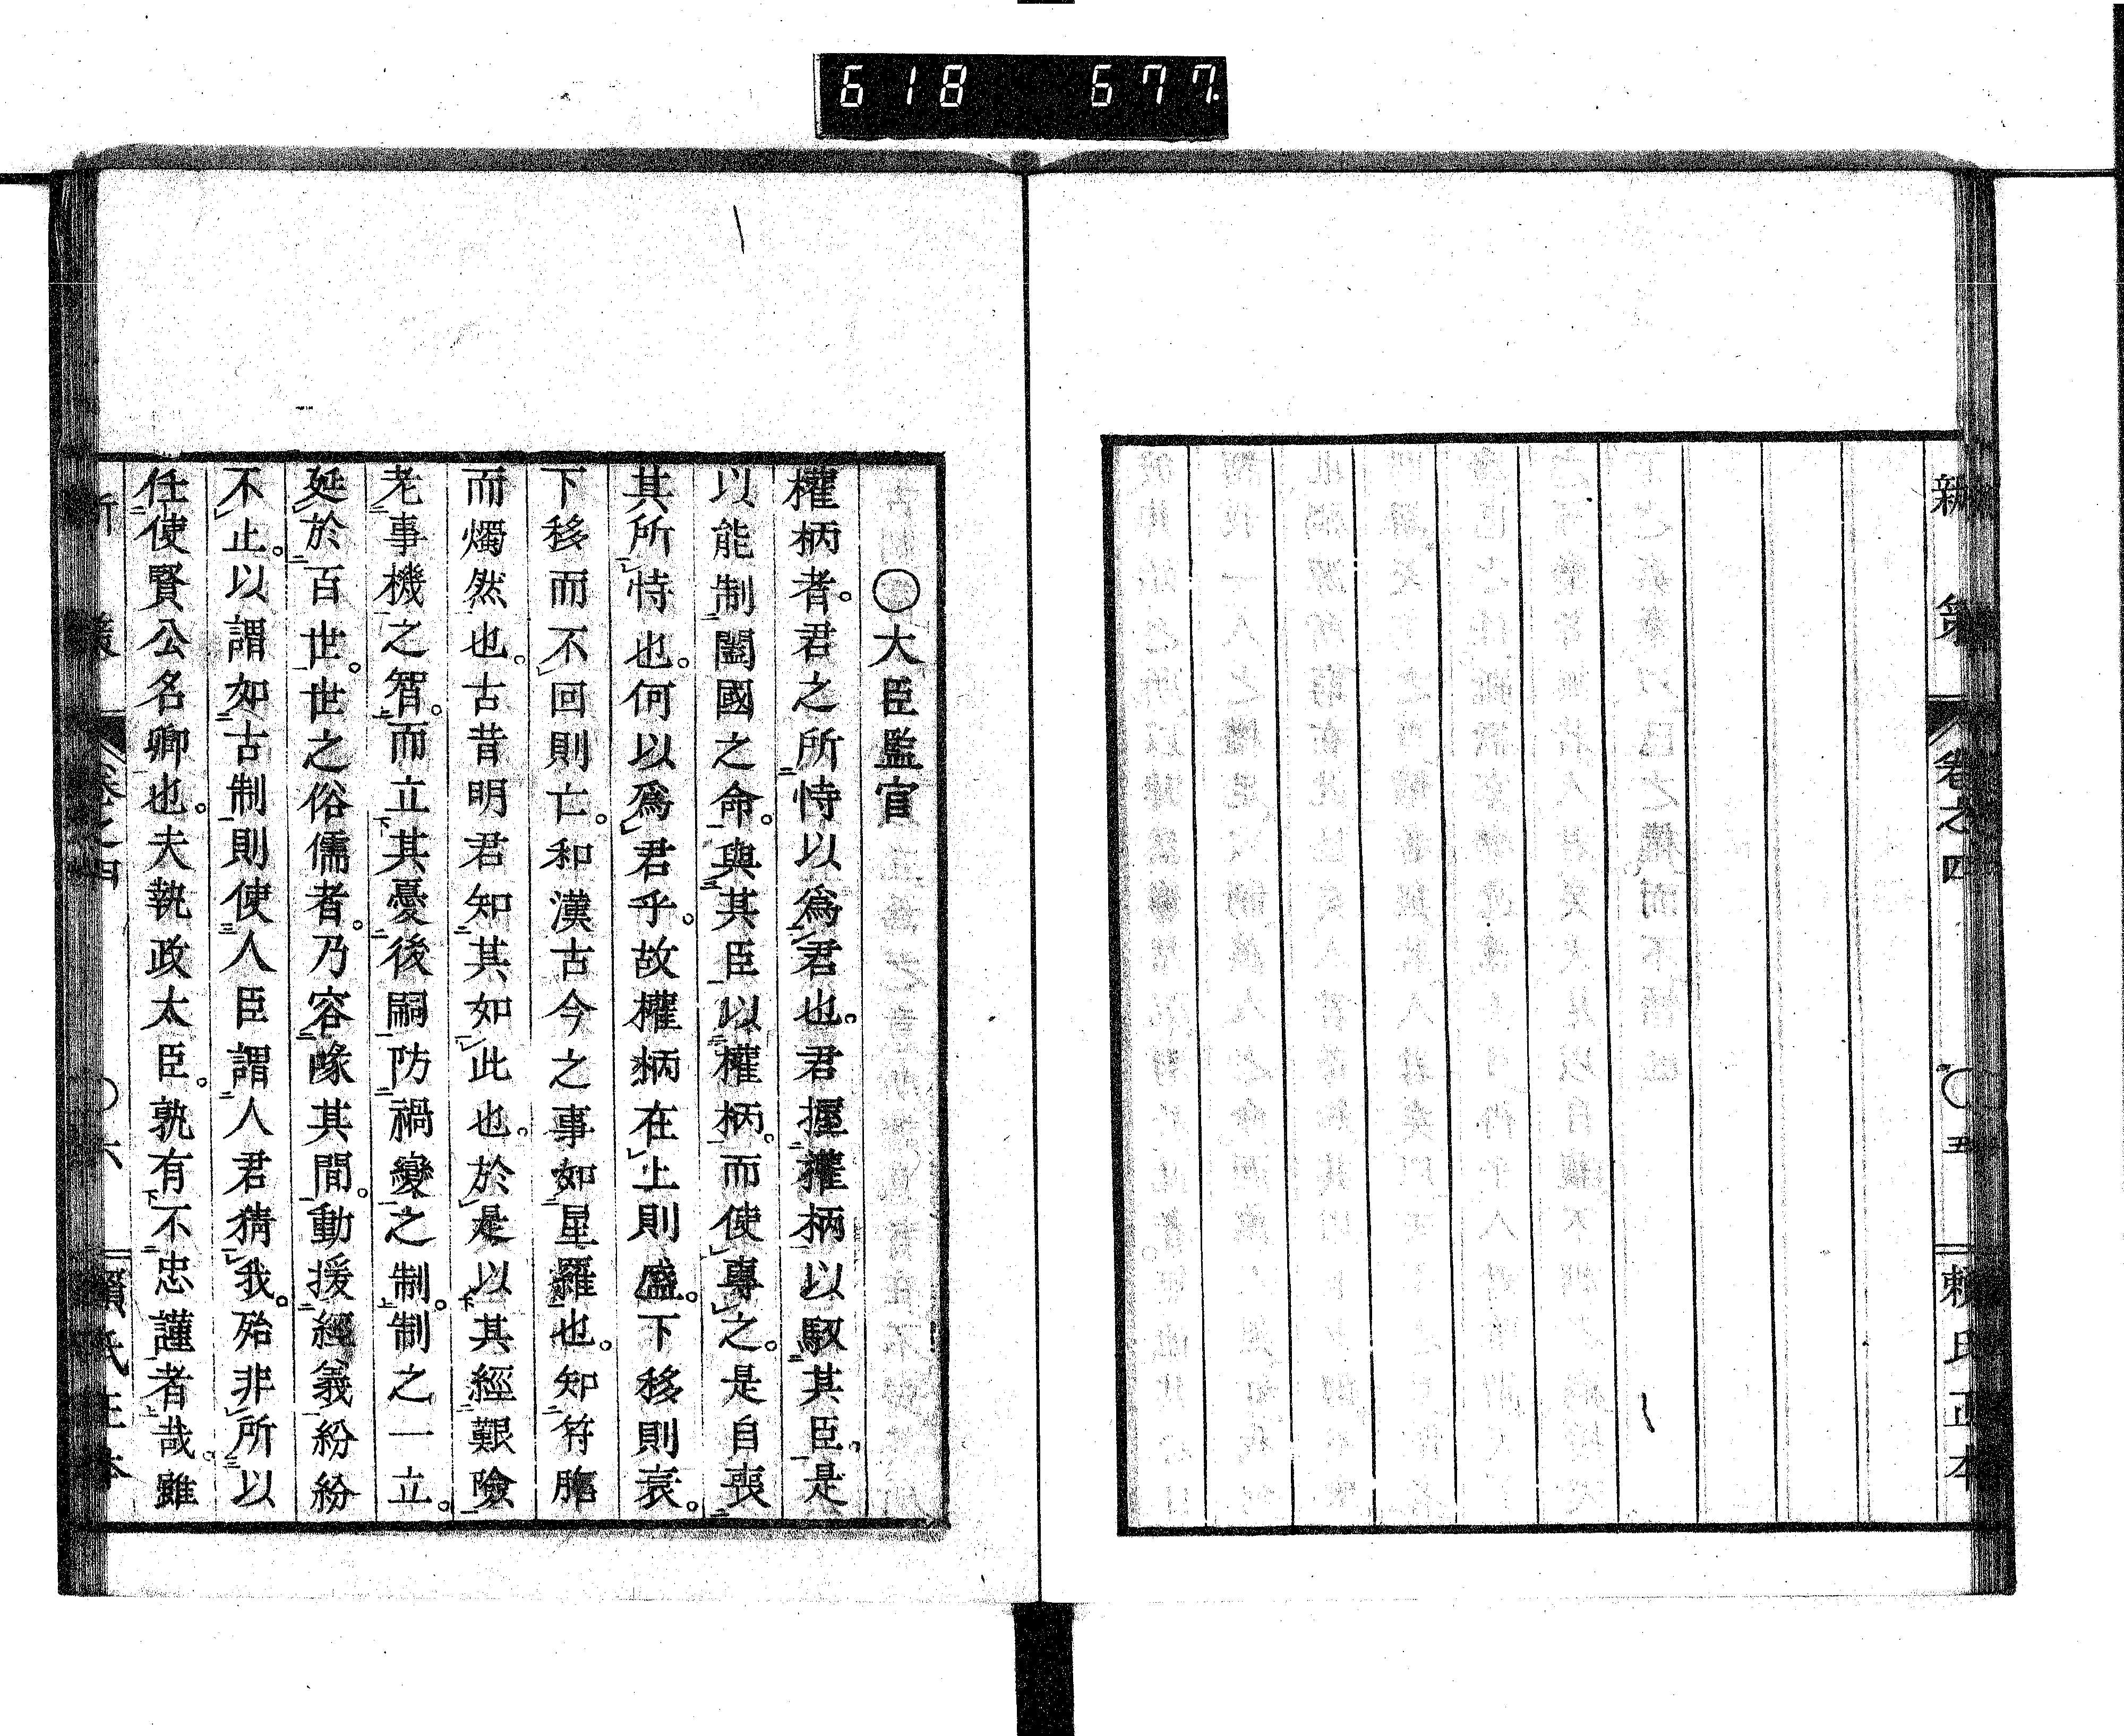 618 677.
新策 卷之四 〇五 賴氏正本
〇大臣監官
權柄者。君之所恃以爲君也。君握權柄以馭其臣。是
以能制闔國之命。與其臣以權柄。而使專之。是自喪
其所恃也。何以爲君乎。故權柄在上則盛。下移則衰。
下移而不回則亡。和漢古今之事如星羅也。如符牉
而燭然也。古昔明君知其如此也。於是以其經艱險
老事機之智。而立其憂後嗣防禍變之制。制之一立。
延於百世。世之俗儒者。乃容喙其間。動援經義紛紛
不止。以謂如古制則使人臣謂人君猜我。殆非所以
任使賢公名卿也。夫執政太臣。孰有不忠謹者哉。雖
卷之四 〇六